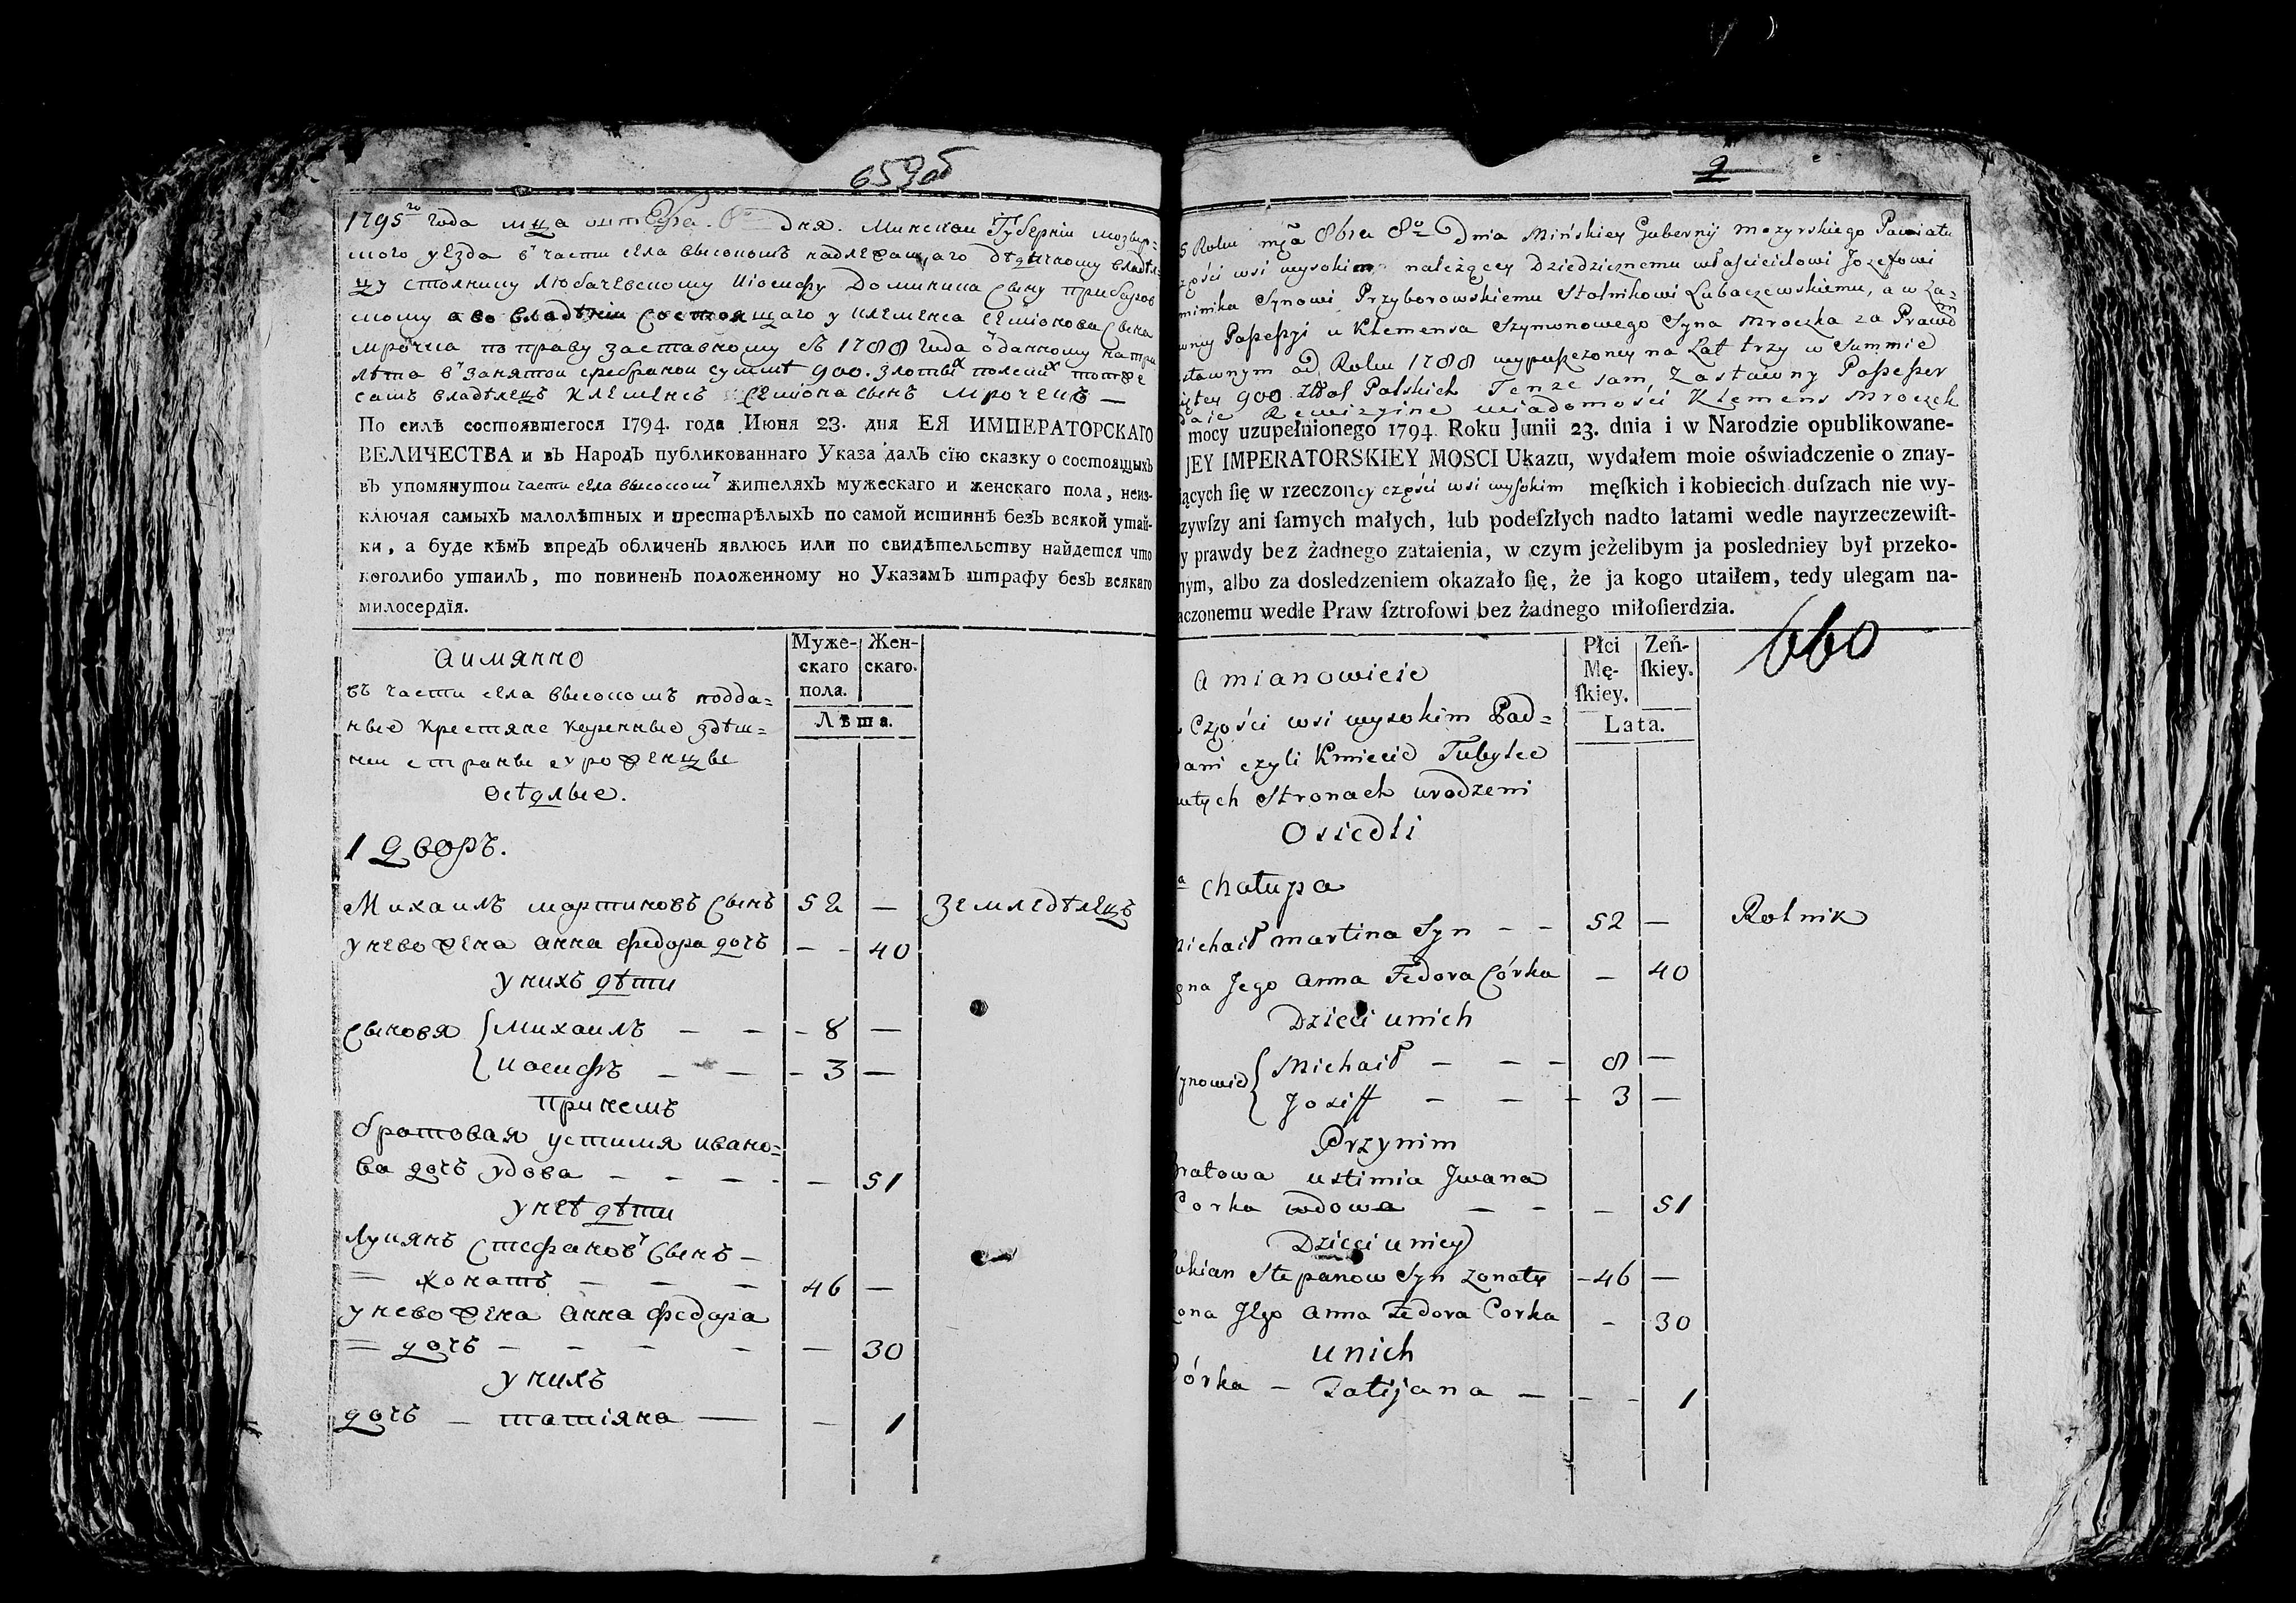 659об
1795го года мца октебра 8о дня. Минскои Губерніи мозыр=
ского уезда в части села высокомъ надлежащаго дѣдичному владѣл=
цу столнику любачевскому Иіосифу Доминика Сыну прибаров
скому а во владѣніи состоящаго у клеменса семіонова Сына
мрочка по праву заставному съ 1788 года отданному на три
лѣта в занятои сребраной суммѣ 900. злотых полских тотже
самъ владѣлецъ клеменсъ семіона сынъ мрочекъ —
По силѣ состоявшегося 1794. года Июня 23. дня ЕЯ ИМПЕРАТОРСКАГО
ВЕЛИЧЕСТВА и въ Народъ публикованнаго Указа далъ сїю сказку о состоящыхъ
въ упомянутои части села высоком жителяхъ мужескаго и женскаго пола, неиз-
ключая самыхъ малолѣтных и престарѣлыхъ по самой истиннѣ безъ всякой утай-
ки, а буде кѣмъ впредъ обличенъ явлюсь или по свидѣтельству найдется что
коголибо утаилъ, то повиненъ положенному по Указамъ штрафу безъ всякаго
милосердїя.
Муже-
скаго
пола.
Жен-
скаго.
Лѣта.
аимянно
въ части села высокомъ подда=
ные крестяне коренные здѣш=
неи страны урожѣнцы
осѣдлые.
1 дворъ.
Михаилъ мартиновъ Сынъ 52 — Земледѣлецъ
унево жена анна федора дочъ — - 40
унихъ дѣти
Сыновя { Михаилъ — — - 8 —
{ иосифъ — — — - 3 —
принемъ
братовая устимия ивано=
ва дочъ удова - - — - — 51
унеѣ дѣти
Лукянъ Стефановъ Сынъ —
= жонатъ — — — 46 —
унево жена анна федора
= дочъ — — — — — 30
унихъ
дочъ — татіяна — — 1
2
5 Roku mca 8bra 8o Dnia Mińskiey Gubernij mozyrskiego Powiatu
zęści wsi wysokim należącey Dziedzicznemu właścicielowi Jozefowi
minika Synowi Przyborowskiemu Stolnikowi Lubaczewskiemu, a w Za=
wney Possessyi u Klemensa Szymonowego Syna Mroczka za Prawem
stawnym od Roku 1788 wypuszczoney na Lat trzy w Summie
ętey 900 Złoł Polskich Tenże sam, Zastawny Possessor
daie Rewizyine wiadomości Klemens Mroczek
mocy uzupełnionego 1794 Roku Junii 23. dnia i w Narodzie opublikowane-
JEY IMPERATORSKIEY MOSCI Ukazu, wydałem moie oświadczenie o znay-
iących ſię w rzeczoney części wsi wysokim męſkich i kobiecich duſzach nie wy-
zywſzy ani ſamych małych, łub podeſzłych nadto latami wedle nayrzeczewiſt-
y prawdy bez żadnego zataienia, w czym jeżelibym ja posledniey był przeko-
nym, albo za dosledzeniem okazało ſię, że ja kogo utaiłem, tedy ulegam na-
aczonemu wedle Praw ſztrofowi bez żadnego miłoſierdzia.
660
Płci
Mę-
ſkiey.
Zeń-
ſkiey.
Lata.
a mianowicie
Części wsi wysokim Pod=
dani czyli Kmiecie Tubylce
wtych Stronach urodzeni
Osiedli
a chałupa
Michaił martina Syn - - 52 — Rolnik
ona Jego anna Fedora Córka — 40
Dzieci unich
ynowie { Michaił — — - 8 —
{ Josiff - — - 3 —
Przynim
ratowa ustimia Jwana
Corka wdowa — - - 51
Dzieci uniey
ukian Stepanow Syn zonaty - 46 —
ona Jego anna Fedora Corka - 30
unich
órka - Tatijana — - - 1